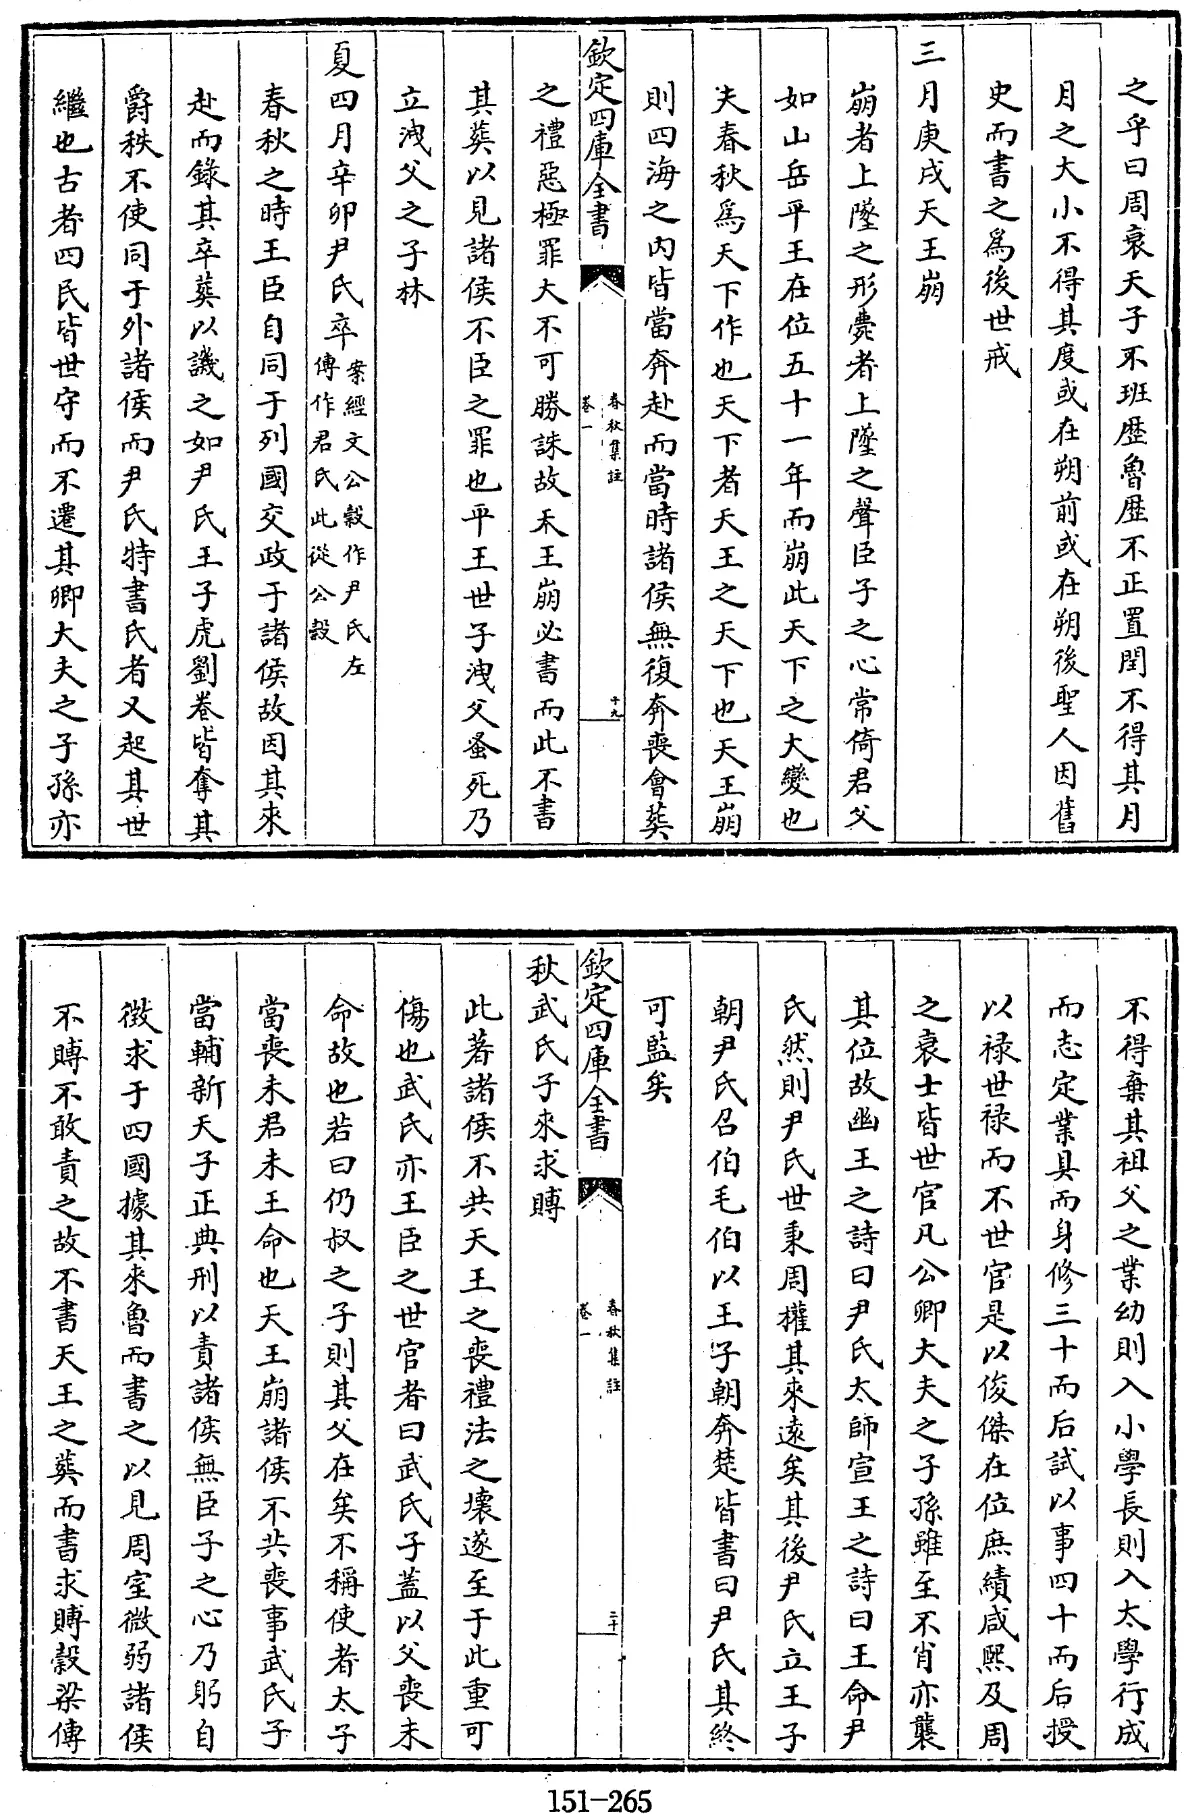 之乎曰周衰天子不班歴魯歴不正置閏不得其月
月之大小不得其度或在朔前或在朔後聖人因舊
史而書之爲後世戒
三月庚戌天王崩
崩者上墜之形薨者上墜之聲臣子之心常倚君父
如山岳平王在位五十一年而崩此天下之大變也
夫春秋爲天下作也天下者天王之天下也天王崩
則四海之内皆當奔赴而當時諸侯無復奔喪會葬
欽定四庫全書
春秋集註
卷一
十九
之禮惡極罪大不可勝誅故禾王崩必書而此不書
其葬以見諸侯不臣之罪也平王世子洩父蚤死乃
立洩父之子林
夏四月辛卯尹氏卒
案經文公穀作尹氏左
傳作君氏此從公穀
春秋之時王臣自同于列國交政于諸侯故因其來
赴而錄其卒葬以譏之如尹氏王子虎劉卷皆奪其
爵秩不使同于外諸侯而尹氏特書氏者又起其世
繼也古者四民皆世守而不遷其卿大夫之子孫亦
不得棄其祖父之業幼則入小學長則入太學行成
而志定業具而身修三十而后試以事四十而后授
以禄世禄而不世官是以俊傑在位庶績咸熙及周
之衰士皆世官凡公卿大夫之子孫雖至不肖亦襲
其位故幽王之詩曰尹氏太師宣王之詩曰王命尹
氏然則尹氏世秉周權其來遠矣其後尹氏立王子
朝尹氏召伯毛伯以王子朝奔楚皆書曰尹氏其終
可監矣
欽定四庫全書
春秋集註
卷一
二十
秋武氏子來求賻
此著諸侯不共天王之喪禮法之壞遂至于此重可
傷也武氏亦王臣之世官者曰武氏子蓋以父喪未
命故也若曰仍叔之子則其父在矣不稱使者太子
當喪未君未王命也天王崩諸侯不共喪事武氏子
當輔新天子正典刑以責諸侯無臣子之心乃躬自
徴求于四國據其來魯而書之以見周室微弱諸侯
不賻不敢責之故不書天王之葬而書求賻穀梁傳
151-265